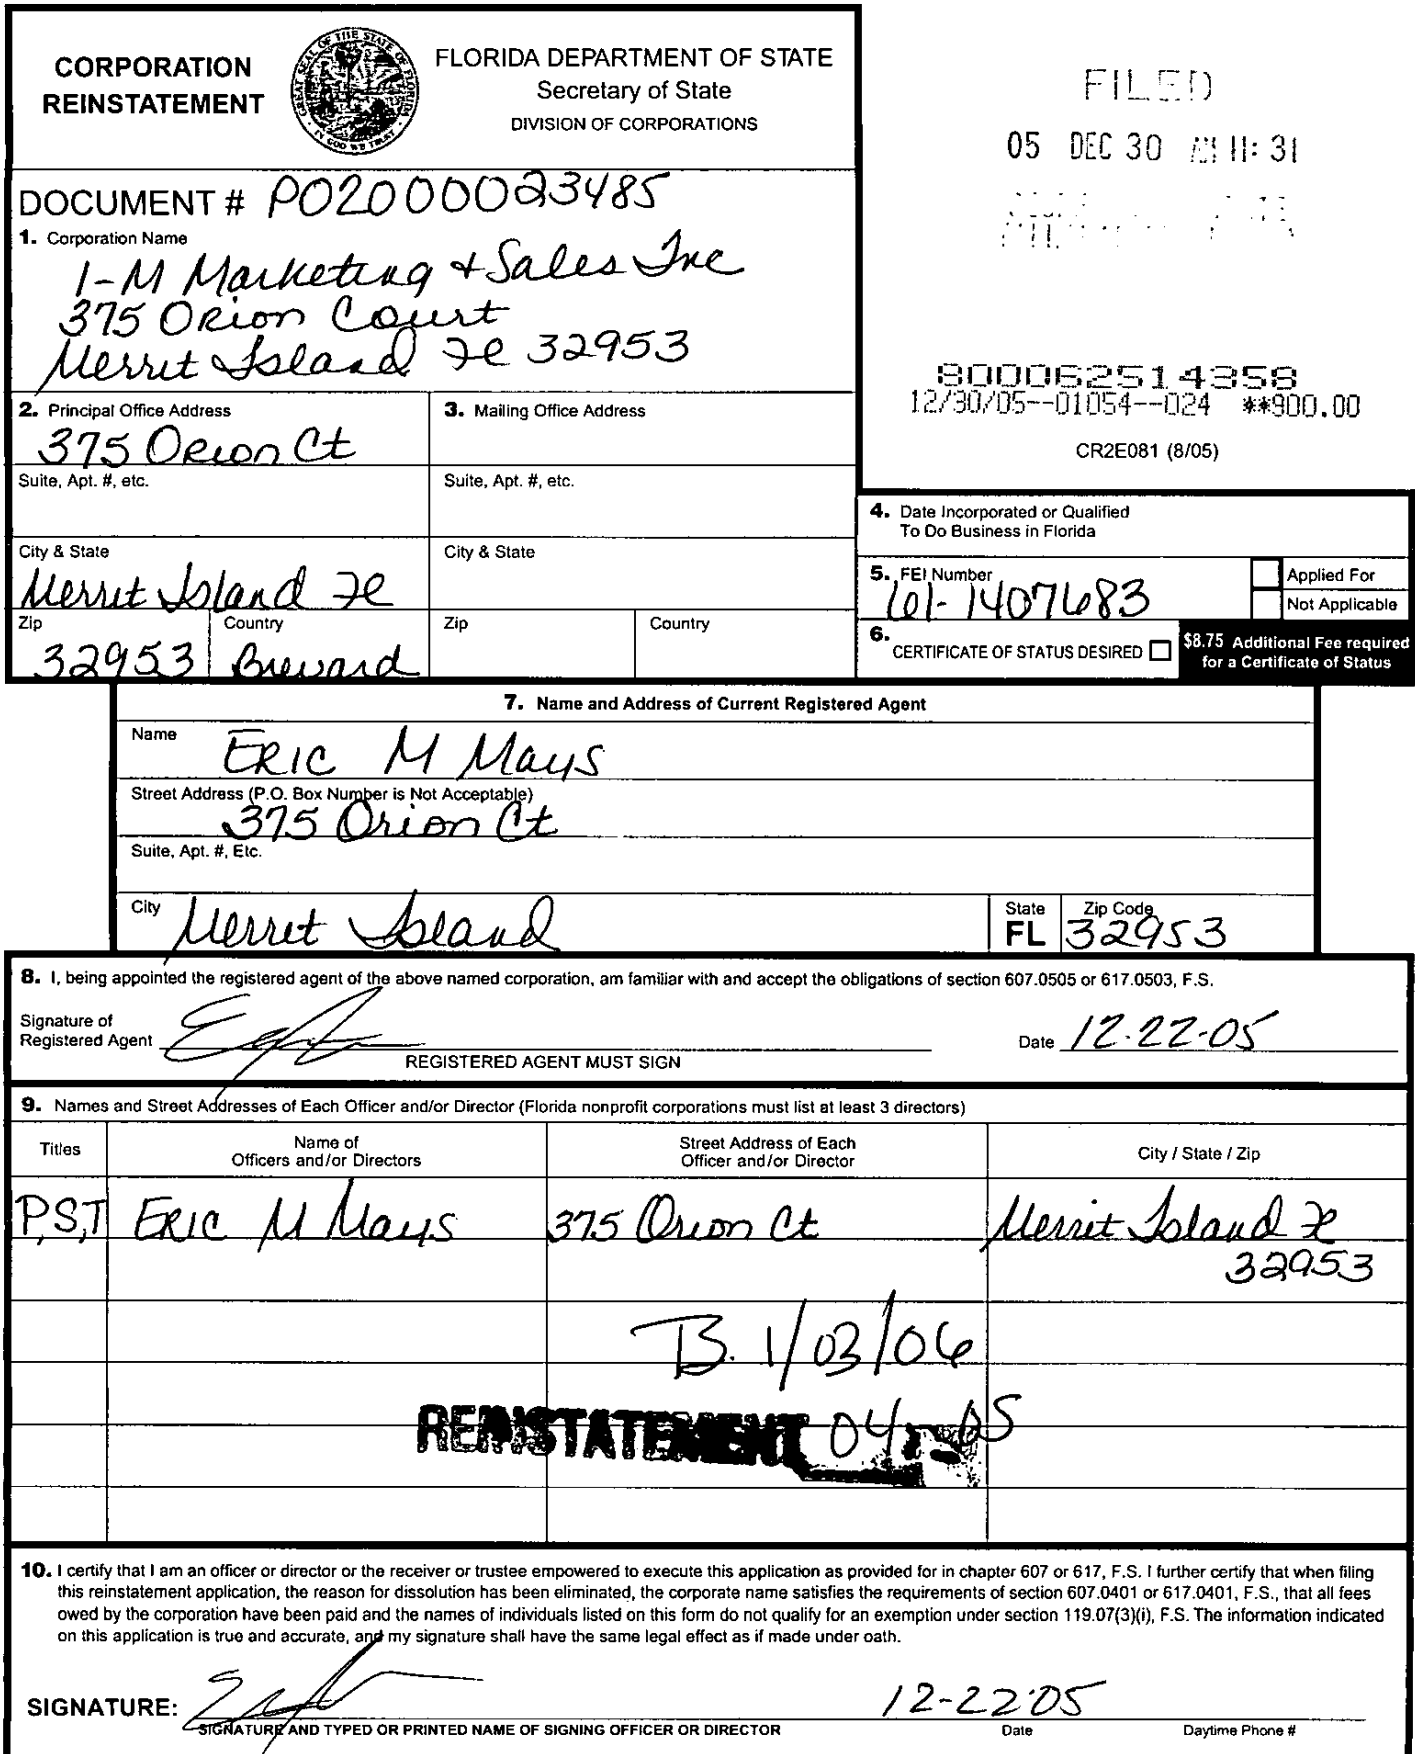 CORPORATION
REINSTATEMENT
GREAT SEAL OF THE STATE OF FLORIDA
IN GOD WE TRUST
FLORIDA DEPARTMENT OF STATE
Secretary of State
DIVISION OF CORPORATIONS
FILED
05 DEC 30 AM 11:31
DOCUMENT # P02000023485
1. Corporation Name
1-M Marketing + Sales Inc
375 Orion Court
Merrit Island Fl 32953
800062514358
12/30/05--01054--024 **900.00
CR2E081 (8/05)
2. Principal Office Address
375 Orion Ct
3. Mailing Office Address
Suite, Apt. #, etc.
Suite, Apt. #, etc.
4. Date Incorporated or Qualified
To Do Business in Florida
City & State
Merrit Island Fl
City & State
5. FEI Number
61-1407683
Applied For
Not Applicable
Zip
32953
Country
Brevard
Zip
Country
6. CERTIFICATE OF STATUS DESIRED
$8.75 Additional Fee required
for a Certificate of Status
7. Name and Address of Current Registered Agent
Name ERIC M Mays
Street Address (P.O. Box Number is Not Acceptable)
375 Orion Ct
Suite, Apt. #, Etc.
City Merret Island
State
FL
Zip Code
32953
8. I, being appointed the registered agent of the above named corporation, am familiar with and accept the obligations of section 607.0505 or 617.0503, F.S.
Signature of
Registered Agent
Date 12-22-05
REGISTERED AGENT MUST SIGN
9. Names and Street Addresses of Each Officer and/or Director (Florida nonprofit corporations must list at least 3 directors)
Titles
Name of
Officers and/or Directors
Street Address of Each
Officer and/or Director
City / State / Zip
P,S,T ERIC M Mays 375 Orion Ct Merrit Island Fl
32953
B. 1/03/06
REINSTATEMENT 04-05
10. I certify that I am an officer or director or the receiver or trustee empowered to execute this application as provided for in chapter 607 or 617, F.S. I further certify that when filing
this reinstatement application, the reason for dissolution has been eliminated, the corporate name satisfies the requirements of section 607.0401 or 617.0401, F.S., that all fees
owed by the corporation have been paid and the names of individuals listed on this form do not qualify for an exemption under section 119.07(3)(i), F.S. The information indicated
on this application is true and accurate, and my signature shall have the same legal effect as if made under oath.
SIGNATURE:
12-22-05
SIGNATURE AND TYPED OR PRINTED NAME OF SIGNING OFFICER OR DIRECTOR
Date
Daytime Phone #